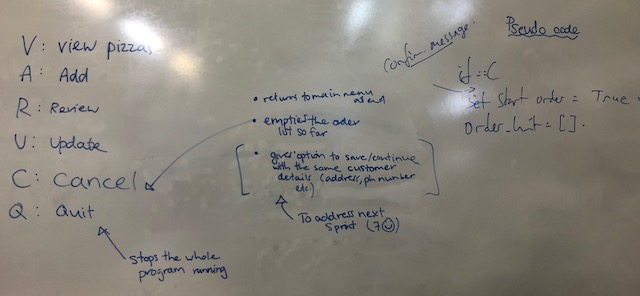 V: view pizzas
A: Add
R: Review
U: Update
C: Cancel
Q: Quit
stops the whole
program running
• returns to main menu
as end
• empties the order
list so far
• gives option to save/continue
with the same customer
details (address, ph number
etc)
To address next
sprint (7☺)
confirm message.
Pseudo code
if == C
Set Start order = True
Order_list = [].